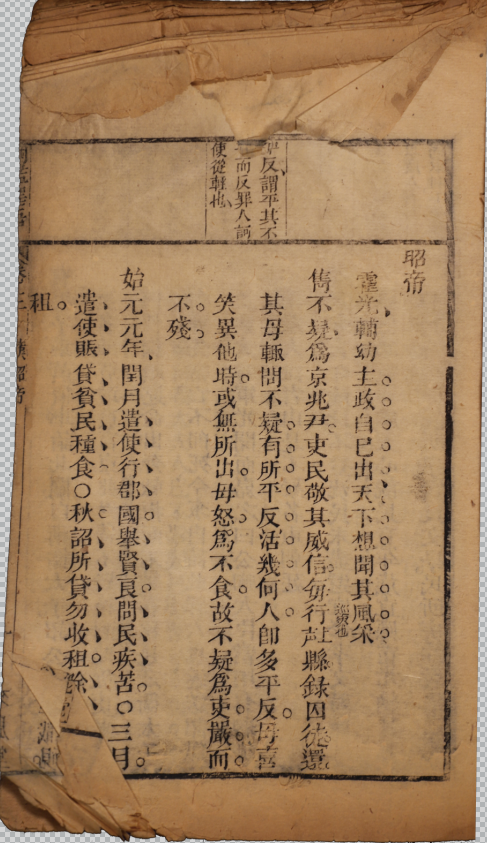 反謂平其不
而反罪人詞
使從輕也
昭帝
霍光輔幼主政自已出天下想聞其風采
雋不疑為京兆尹吏民敬其威信每行縣錄囚徒還
其母輒問不疑有所平反活幾何人卽多平反母喜
笑異他時或無所出母怒為不食故不疑為吏嚴而
不殘
始元元年閏月遣使行郡國舉賢良問民疾苦○三月
遣使賑貸貧民種食○秋詔所貸勿收租除
租
卷三 漢昭帝